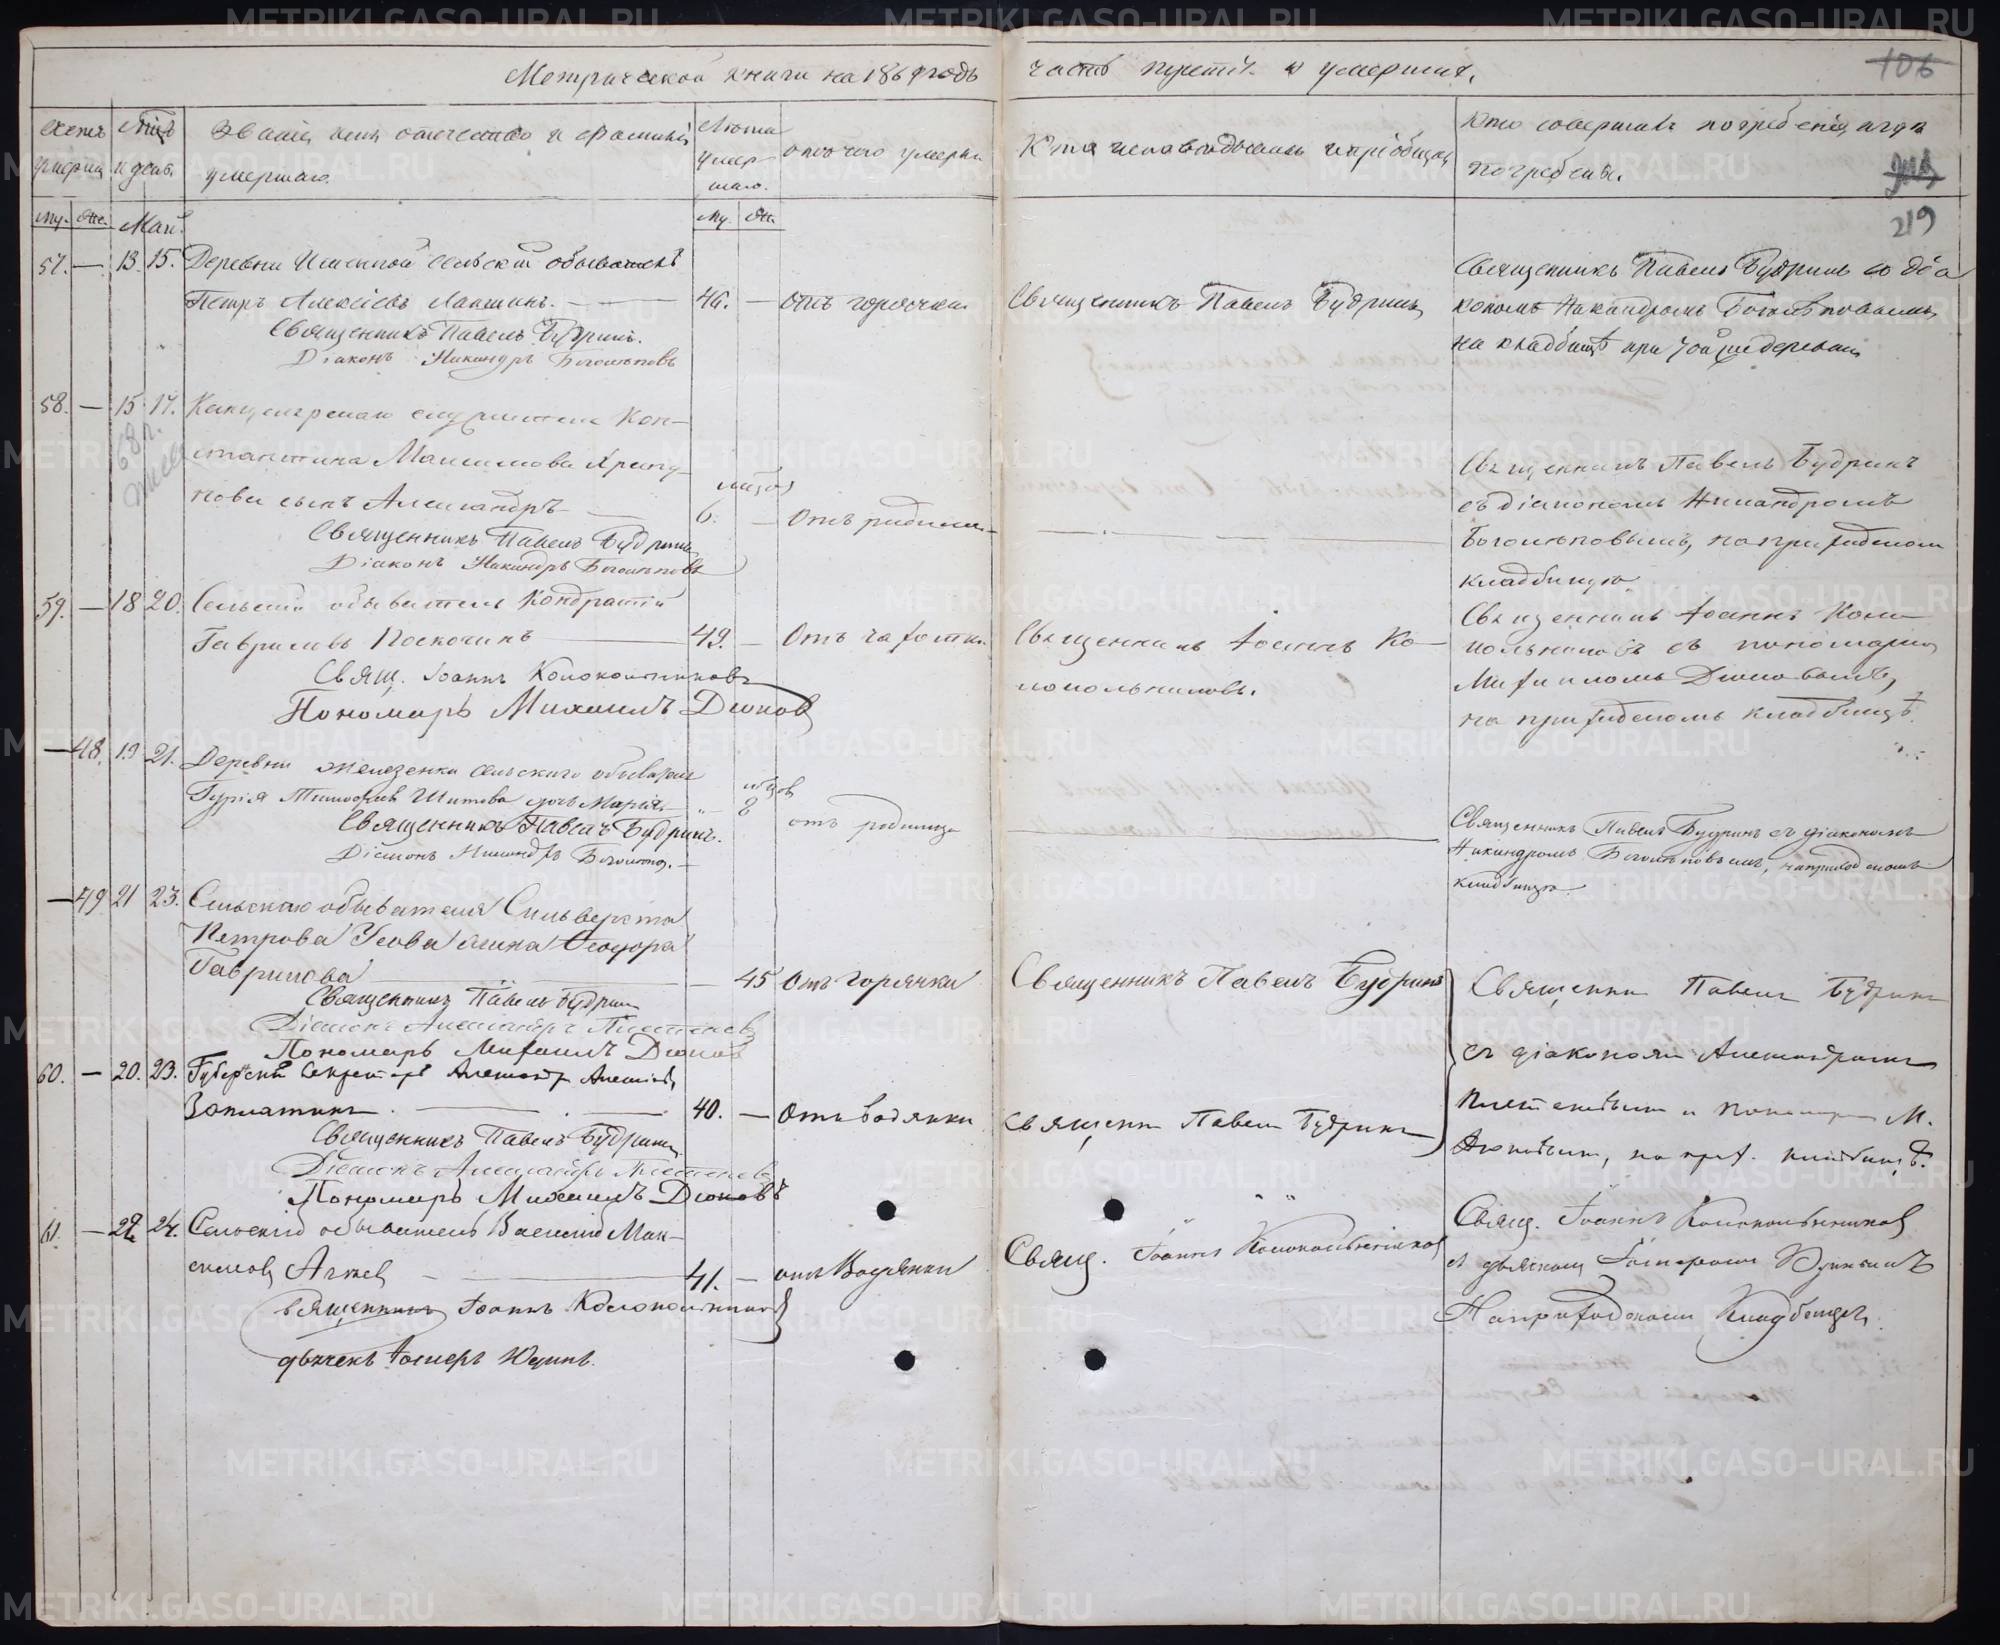 Метрической книги на 1869 годъ
часть третія о умершихъ.
106
219
Счетъ умершихъ
Мѣсяцъ и день.
Званіе, имя, отчество и фамилія умершаго.
Лѣта умершаго.
отъ чего умеръ
Кто исповѣдывалъ и пріобщалъ
Кто совершалъ погребеніе и гдѣ погребены.
Му. Же. Май. Му. Же.
57. — 13. 15. Деревни сельскій обыватель
Петръ Алексѣевъ Лапшинъ. — 46. — отъ горячки
Священникъ Павелъ Будринъ.
Діаконъ Никандръ Боголѣповъ
Священникъ Павелъ Будринъ
Священникъ Павелъ Будринъ со діа
кономъ Никандромъ Боголѣповымъ,
на кладбищѣ при деревни
58. — 15 17. Канцелярскаго служителя Кон-
стантина Максимова
нова сынъ Александръ — мѣсяц 6. — Отъ родимца
Священникъ Павелъ Будринъ
Діаконъ Никандръ Боголѣповъ
68 г.
Священникъ Павелъ Будринъ
съ діакономъ Никандромъ
Боголѣповымъ, на приходскомъ
кладбищѣ.
59. — 18 20. Сельскій обыватель Кондратій
Гавриловъ Поскочинъ — 49. — Отъ чахотки.
Свящ. Іоаннъ Колокольниковъ
Пономарь Михаилъ Дюковъ
Священникъ Іоаннъ Ко-
локольниковъ.
Священникъ Іоаннъ Коло-
кольниковъ съ пономаремъ
Михаиломъ Дюковымъ,
на приходскомъ кладбищѣ.
— 48. 19 21. Деревни Желѣзенки сельскаго обывателя
Гурія Тимофеева Шитова дочь Марія — мѣсяцов 8 отъ родимца
Священникъ Павелъ Будринъ.
Діаконъ Никандръ Боголѣповъ.
Священникъ Павелъ Будринъ съ діакономъ
Никандромъ Боголѣповымъ, на приходскомъ
кладбищѣ.
— 49 21 23. Сельскаго обывателя Сильверста
Петрова Усова жена Ѳеодора
Гаврилова — 45 Отъ горячки
Священникъ Павелъ Будринъ
Діаконъ Александръ Плетеневъ
Пономарь Михаилъ Дюковъ
Священникъ Павелъ Будринъ
Священникъ Павелъ Будринъ
съ діакономъ Александромъ
Плетеневымъ и пономаремъ М.
Дюковымъ, на прих. кладбищѣ.
60. — 20. 23. Губернскій Секретарь Александръ Алексѣевъ
Заплаткинъ. — 40. — Отъ водянки
Священникъ Павелъ Будринъ
Діаконъ Александръ Плетеневъ
Пономарь Михаилъ Дюковъ
Священникъ Павелъ Будринъ
61. — 22 24. Сельскій обыватель Василій Мак-
симовъ — 41. — отъ Водянки
Священникъ Іоаннъ Колокольниковъ
дьячекъ Юдинъ.
Свящ. Іоаннъ Колокольниковъ
Свящ. Іоаннъ Колокольниковъ
съ дьячкомъ Юдинымъ
На приходскомъ Кладбищѣ.
METRIKI.GASO-URAL.RU